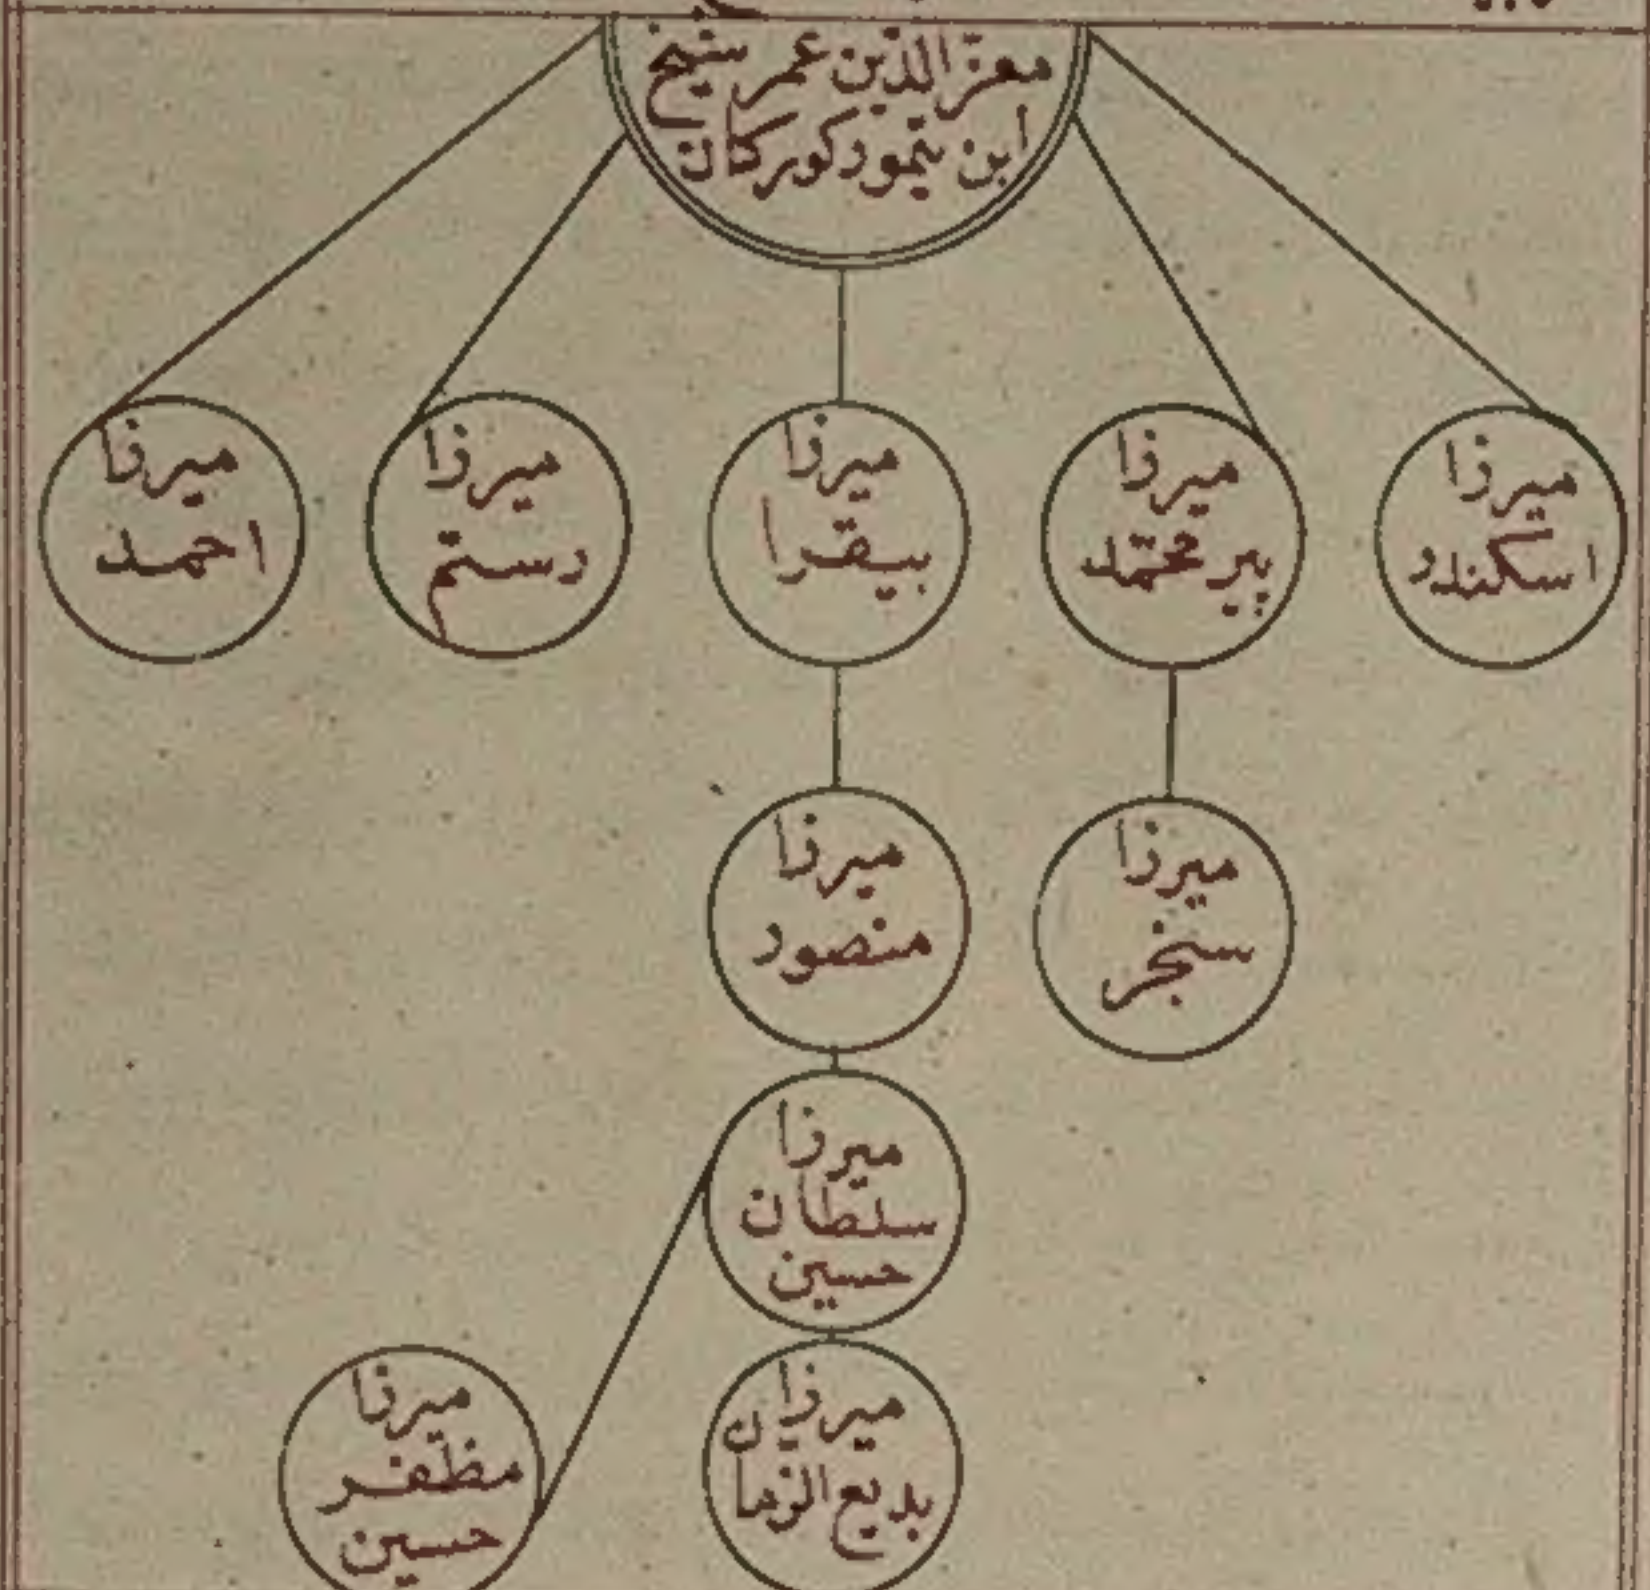 معزّ الدّين عمر شيخ
ابن تيمور كوركان
ميرزا
اسكندر
ميرزا
پير محمّد
ميرزا
بيقرا
ميرزا
رستم
ميرزا
احمد
ميرزا
سنجر
ميرزا
منصور
ميرزا
سلطان
حسين
ميرزا
بديع الزمان
ميرزا
مظفر
حسين